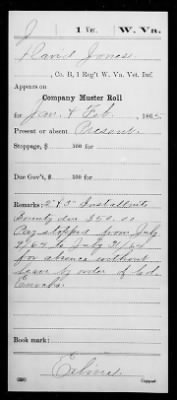 J 1 Vet. W. Va.
David Jones
, Co. B, 1 Reg't W. Va. Vet. Inf.
Appears on
Company Muster Roll
for Jan. & Feb., 1865.
Present or absent Present
Stoppage, $ 100 for
Due Gov't, $ 100 for
Remarks: 2 & 3 Installments
Bounty due $50.00
Pay stopped from July
2/64 to July 21/64
for absence without
leave by order of Col.
Enochs.
Book mark:
Copyist.